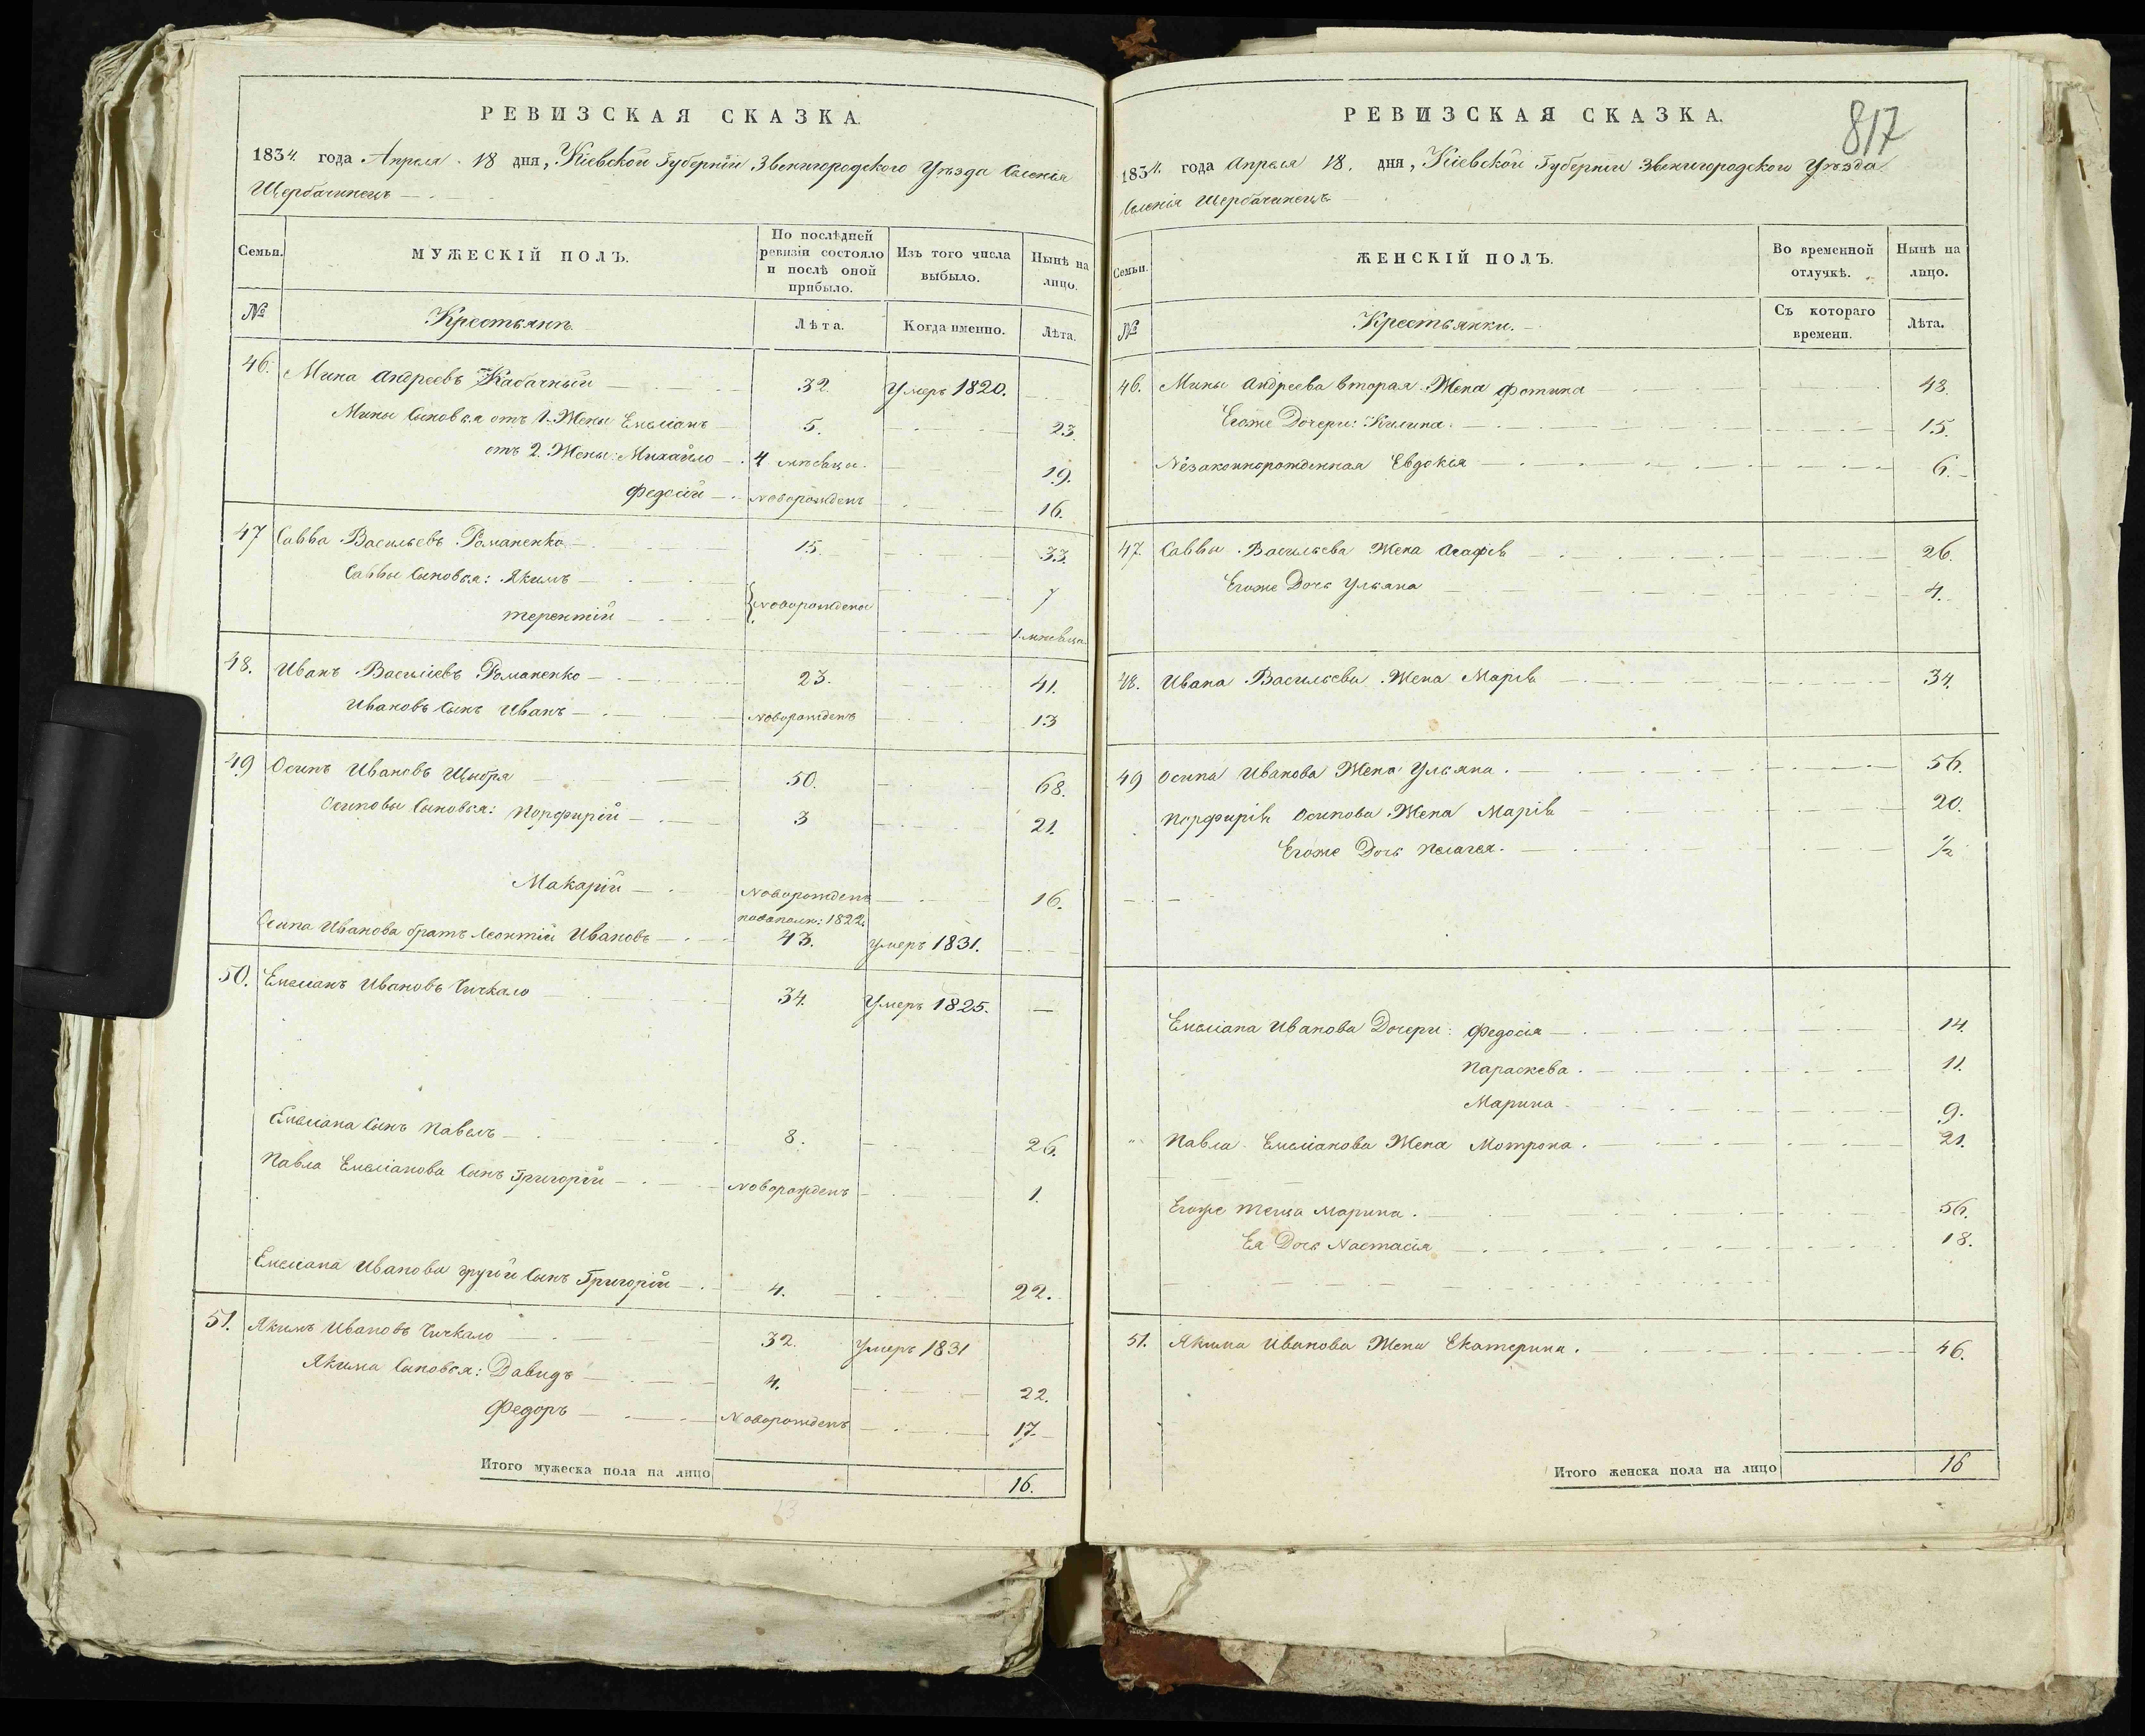 РЕВИЗСКАЯ СКАЗКА.
1834. года Апреля 18 дня, Кіевской Губерніи Звенигородского Уѣзда Селенія
Щербачинецъ
Семьи.
МУЖЕСКІЙ ПОЛЪ.
По послѣдней ревизіи состояло и послѣ оной прибыло.
Изъ того числа выбыло.
Нынѣ на лицо.
№
Крестьянѣ
Лѣта.
Когда именно.
Лѣта.
46. Мина Андреевъ Кабачный 32. Умеръ 1820.
Мины Сыновья отъ 1. Жены Емеліанъ 5. 23.
отъ 2. Жены: Михайло 4 мѣсяцы. 19.
Федосій Новорожденъ 16.
47 Савва Васильевъ Романенко 15. 33.
Саввы Сыновья: Якимъ 7
Новорождены
Терентій 1. мѣсяца
48. Иванъ Василіевъ Романенко 23. 41.
Ивановъ Сынъ Иванъ Новорожденъ 13
49 Осипъ Ивановъ Щыбря 50. 68.
Осиповы Сыновья: Порфирій 3 21.
Макарій Новорожденъ 16.
1822.
Осипа Иванова братъ Леонтій Ивановъ 43. умеръ 1831.
50. Емеліанъ Ивановъ Чичкало 34. Умеръ 1825. —
Емеліана Сынъ Павелъ 8. 26.
Павла Емеліанова Сынъ Григорій Новорожденъ 1.
Емеліана Иванова другій Сынъ Григорій 4. 22.
51. Якимъ Ивановъ Чичкало 32. Умеръ 1831
Якима Сыновья: Давидъ 4. 22.
Федоръ Новорожденъ 17.
Итого мужеска пола на лицо 16.
13
817
РЕВИЗСКАЯ СКАЗКА.
1834. года Апреля 18. дня, Кіевской Губерніи Звенигородского Уѣзда
Селенія Щербачинецъ
Семьи.
ЖЕНСКІЙ ПОЛЪ.
Во временной отлучкѣ.
Нынѣ на лицо.
№
Крестьянки.
Съ котораго времени.
Лѣта.
46. Мины Андреева вторая Жена Фотина 48.
Егоже Дочери: Килина 15.
Незаконнорожденная Евдокія 6.
47. Саввы Васильева Жена Агафія 26.
Егоже Дочь Ульяна 4.
48. Ивана Васильева Жена Марія 34.
49 Осипа Иванова Жена Ульяна. 56.
Порфирія Осипова Жена Марія 20.
Егоже Дочь Пелагея. 1/2
Емеліана Иванова Дочери: Федосія 14.
Параскева. 11.
Марина 9.
Павла Емеліанова Жена Мотрона. 21.
Егоже теща Марина. 56.
Ея Дочь Настасія 18.
51. Якима Иванова Жена Екатерина. 46.
Итого женска пола на лицо 16